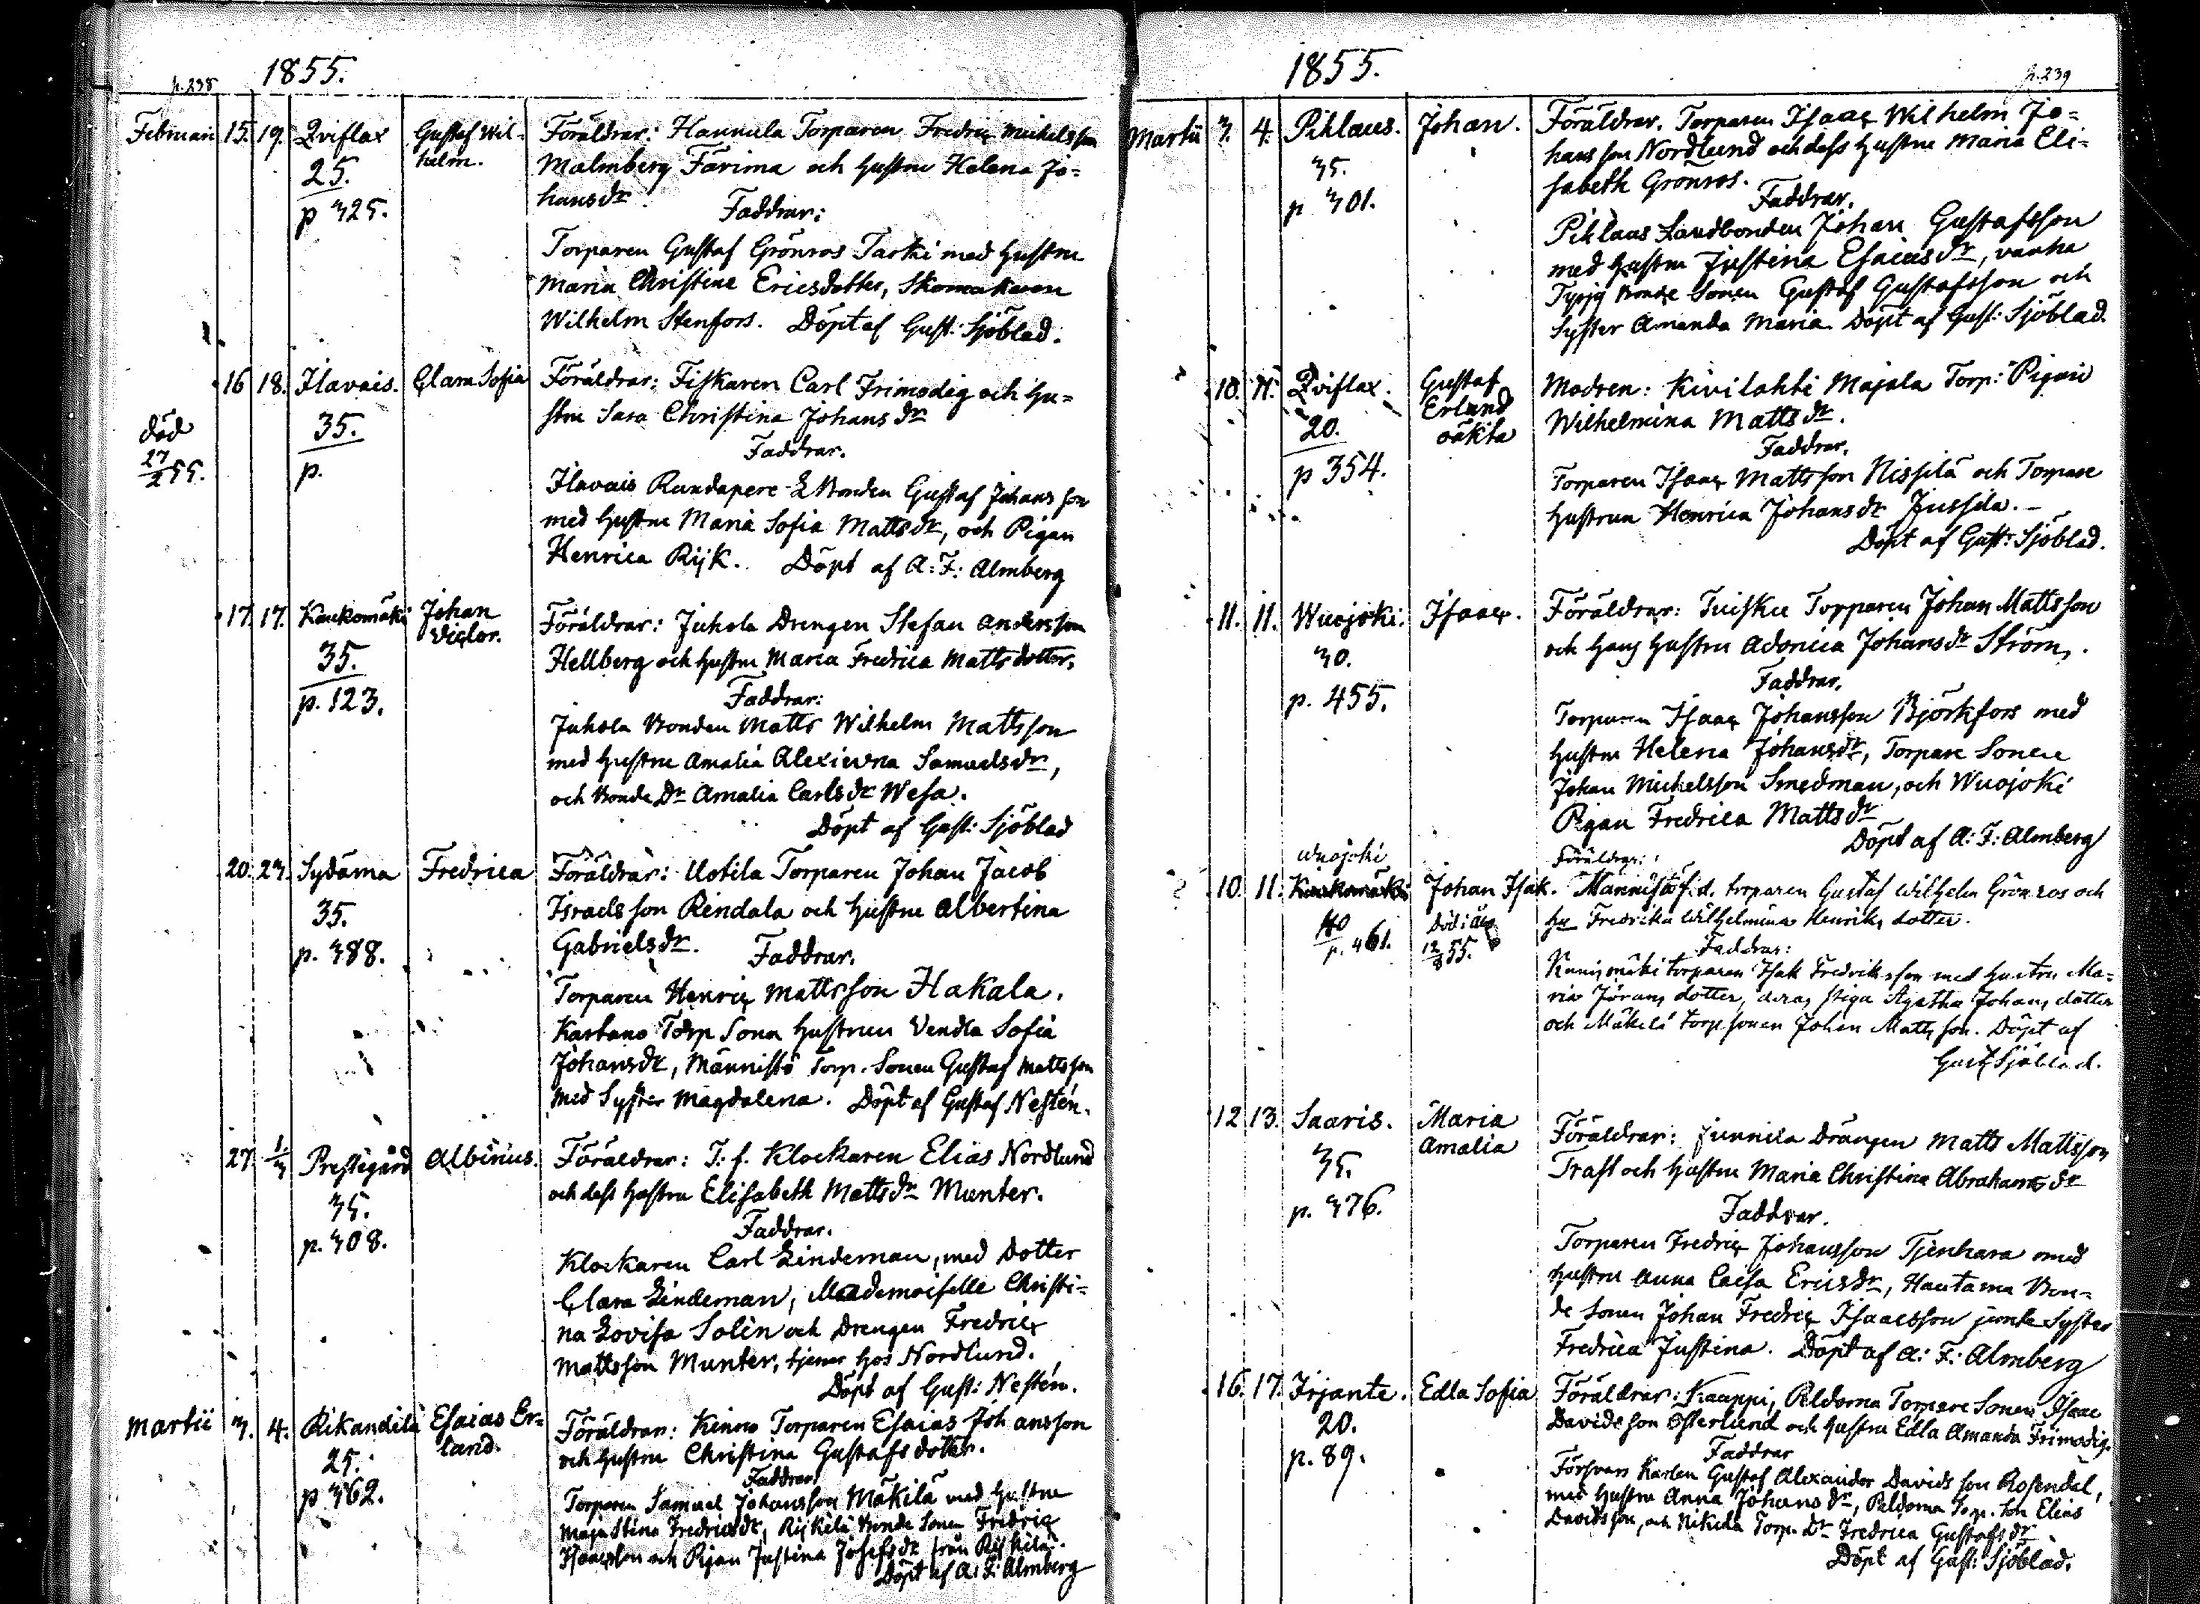 p. 238
1855.
Februari 15. 19. Qviflax Gustaf Wil- Föräldrar: Hannula Torparen Fredric Michelsson
25. helm. Malmberg Farima och hustru Helena Jo-
p 325. hansdr
Faddrar:
Torparen Gustaf Grönros Tarki med hustru
Maria Christina Ericsdotter, Skomakaren
Wilhelm Stenfors. Döpt af Gust: Sjöblad.
16 18. Ilavais. Clara Sofia Föräldrar: Fiskaren Carl Frimodig och hu-
död 35. stru Sara Christina Johansdr
27/2 55. p. Faddrar.
Ilavais Rundapere Bonden Gustaf Johansson
med hustru Maria Sofia Mattsdr, och Pigan
Henrica Rijk. Döpt af A: F: Almberg
17. 17. Kaukomäki Johan Föräldrar: Juhola Drengen Stefan Andersson
35. Victor. Hellberg och hustru Maria Fredrica Mattsdotter.
p. 123. Faddrar:
Juhola Bonden Matts Wilhelm Mattsson
med hustru Amalia Alexievna Samuelsdr,
och Bonde Dr Amalia Carlsdr Wesa.
Döpt af Gust: Sjöblad
20. 23. Sydämä Fredrica Föräldrar: Uotila Torparen Johan Jacob
35. Israelsson Rindala och hustru Albertina
p. 388. Gabrielsdr. Faddrar.
Torparen Henric Mattsson Hakala.
Karbano Torp Sona hustrun Vendla Sofia
Johansdr, Männistö Torp. Sonen Gustaf Mattsson
med Syster Magdalena. Döpt af Gustaf Nestén.
27. 1/3 Prestegård Albinus. Föräldrar: T. f. Klockaren Elias Nordlund
35. och dess hustru Elisabeth Mattsdr Munter.
p. 308. Faddrar.
Klockaren Carl Lindeman, med Dotter
Clara Lindeman, Mademoiselle Christi-
na Lovisa Solin och Drengen Fredric
Mattsson Munter, tjener hos Nordlund.
Döpt af Gust: Nestén.
Martii 3. 4. Rikandilä Esaias Er- Föräldrar: Kinno Torparen Esaias Johansson
25. land. och hustru Christina Gustafsdotter.
p 362. Faddrar.
Torparen Samuel Johansson Mäkilä med hustru
Maja Stina Fredricsdr, Rijkilä Bonde Sonen Fredric
Isaacsson och Pigan Justina Josefsdr från Rijkilä.
Döpt af A: F: Almberg
1855.
p. 239
Martii 3. 4. Piklaus. Johan. Föräldrar. Torparen Isaac Wilhelm Jo-
35. hansson Nordlund och dess hustru Maria Eli-
p 301. sabeth Grönros.
Faddrar.
Piklaus Landbonden Johan Gustafsson
med hustru Justina Esaiasdr, vanha
Bonde Sonen Gustaf Gustafsson och
Syster Amanda Maria. Döpt af Gust: Sjöblad.
10. 11. Qviflax. Gustaf Modren: Kivilahti Majala Torp: Pigan
20. Erlund Wilhelmina Mattsdr.
p 354. oäkta Faddrar.
Torparen Isaac Mattsson Nissilä och Torpare
hustrun Henrica Johansdr Jussila.
Döpt af Gust: Sjöblad.
11. 11. Wuojoki. Isaac. Föräldrar: Tuisku Torparen Johan Mattsson
30. och hans hustru Adonica Johansdr Ström.
p. 455. Faddrar.
Torparen Isaac Johansson Björkfors med
hustru Helena Johansdr, Torpare Sonen
Johan Michelsson Smedman, och Wuojoki
Pigan Fredrica Mattsdr
Döpt af A: F: Almberg
Wuojoki Föräldrar:
10. 11. Kaukomäki Johan Isak. Männistö f.d. torparen Gustaf Wilhelm Grönros och
40 hu Fredrika Wilhelmina Henriksdotter.
p. 461. 12/8 55. Faddrar:
torparen Isak Fredriksson med hustru Ma-
ria Jöransdotter, deras piga Agatha Johansdotter
och Mäkelä torp sonen Johan Mattsson. Döpt af
Gust Sjöblad.
12 13. Saaris. Maria Föräldrar: Junnila Drängen Matts Mattsson
35. Amalia Trast och hustru Maria Christina Abrahamsdr
p. 376. Faddrar.
Torparen Fredric Johansson Tjenhara med
hustru Anna Caisa Ericsdr, Hautama Bon-
de Sonen Johan Fredric Isaacsson jemte Syster
Fredrica Justina. Döpt af A: F: Almberg
16. 17. Irjante. Edla Sofia Föräldrar: Kauppi, Peldoma Torpare Sonen Isaac
20. Davidsson Österlund och hustru Edla Amanda Frimodig.
p. 89. Faddrar
Försvars Karlen Gustaf Alexander Davidsson Rosendal,
med hustru Anna Johansdr, Peldoma Torp. Son Elias
Davidsson, och Nikula Torp. Dr Fredrica Gustafsdr
Döpt af Gust: Sjöblad.